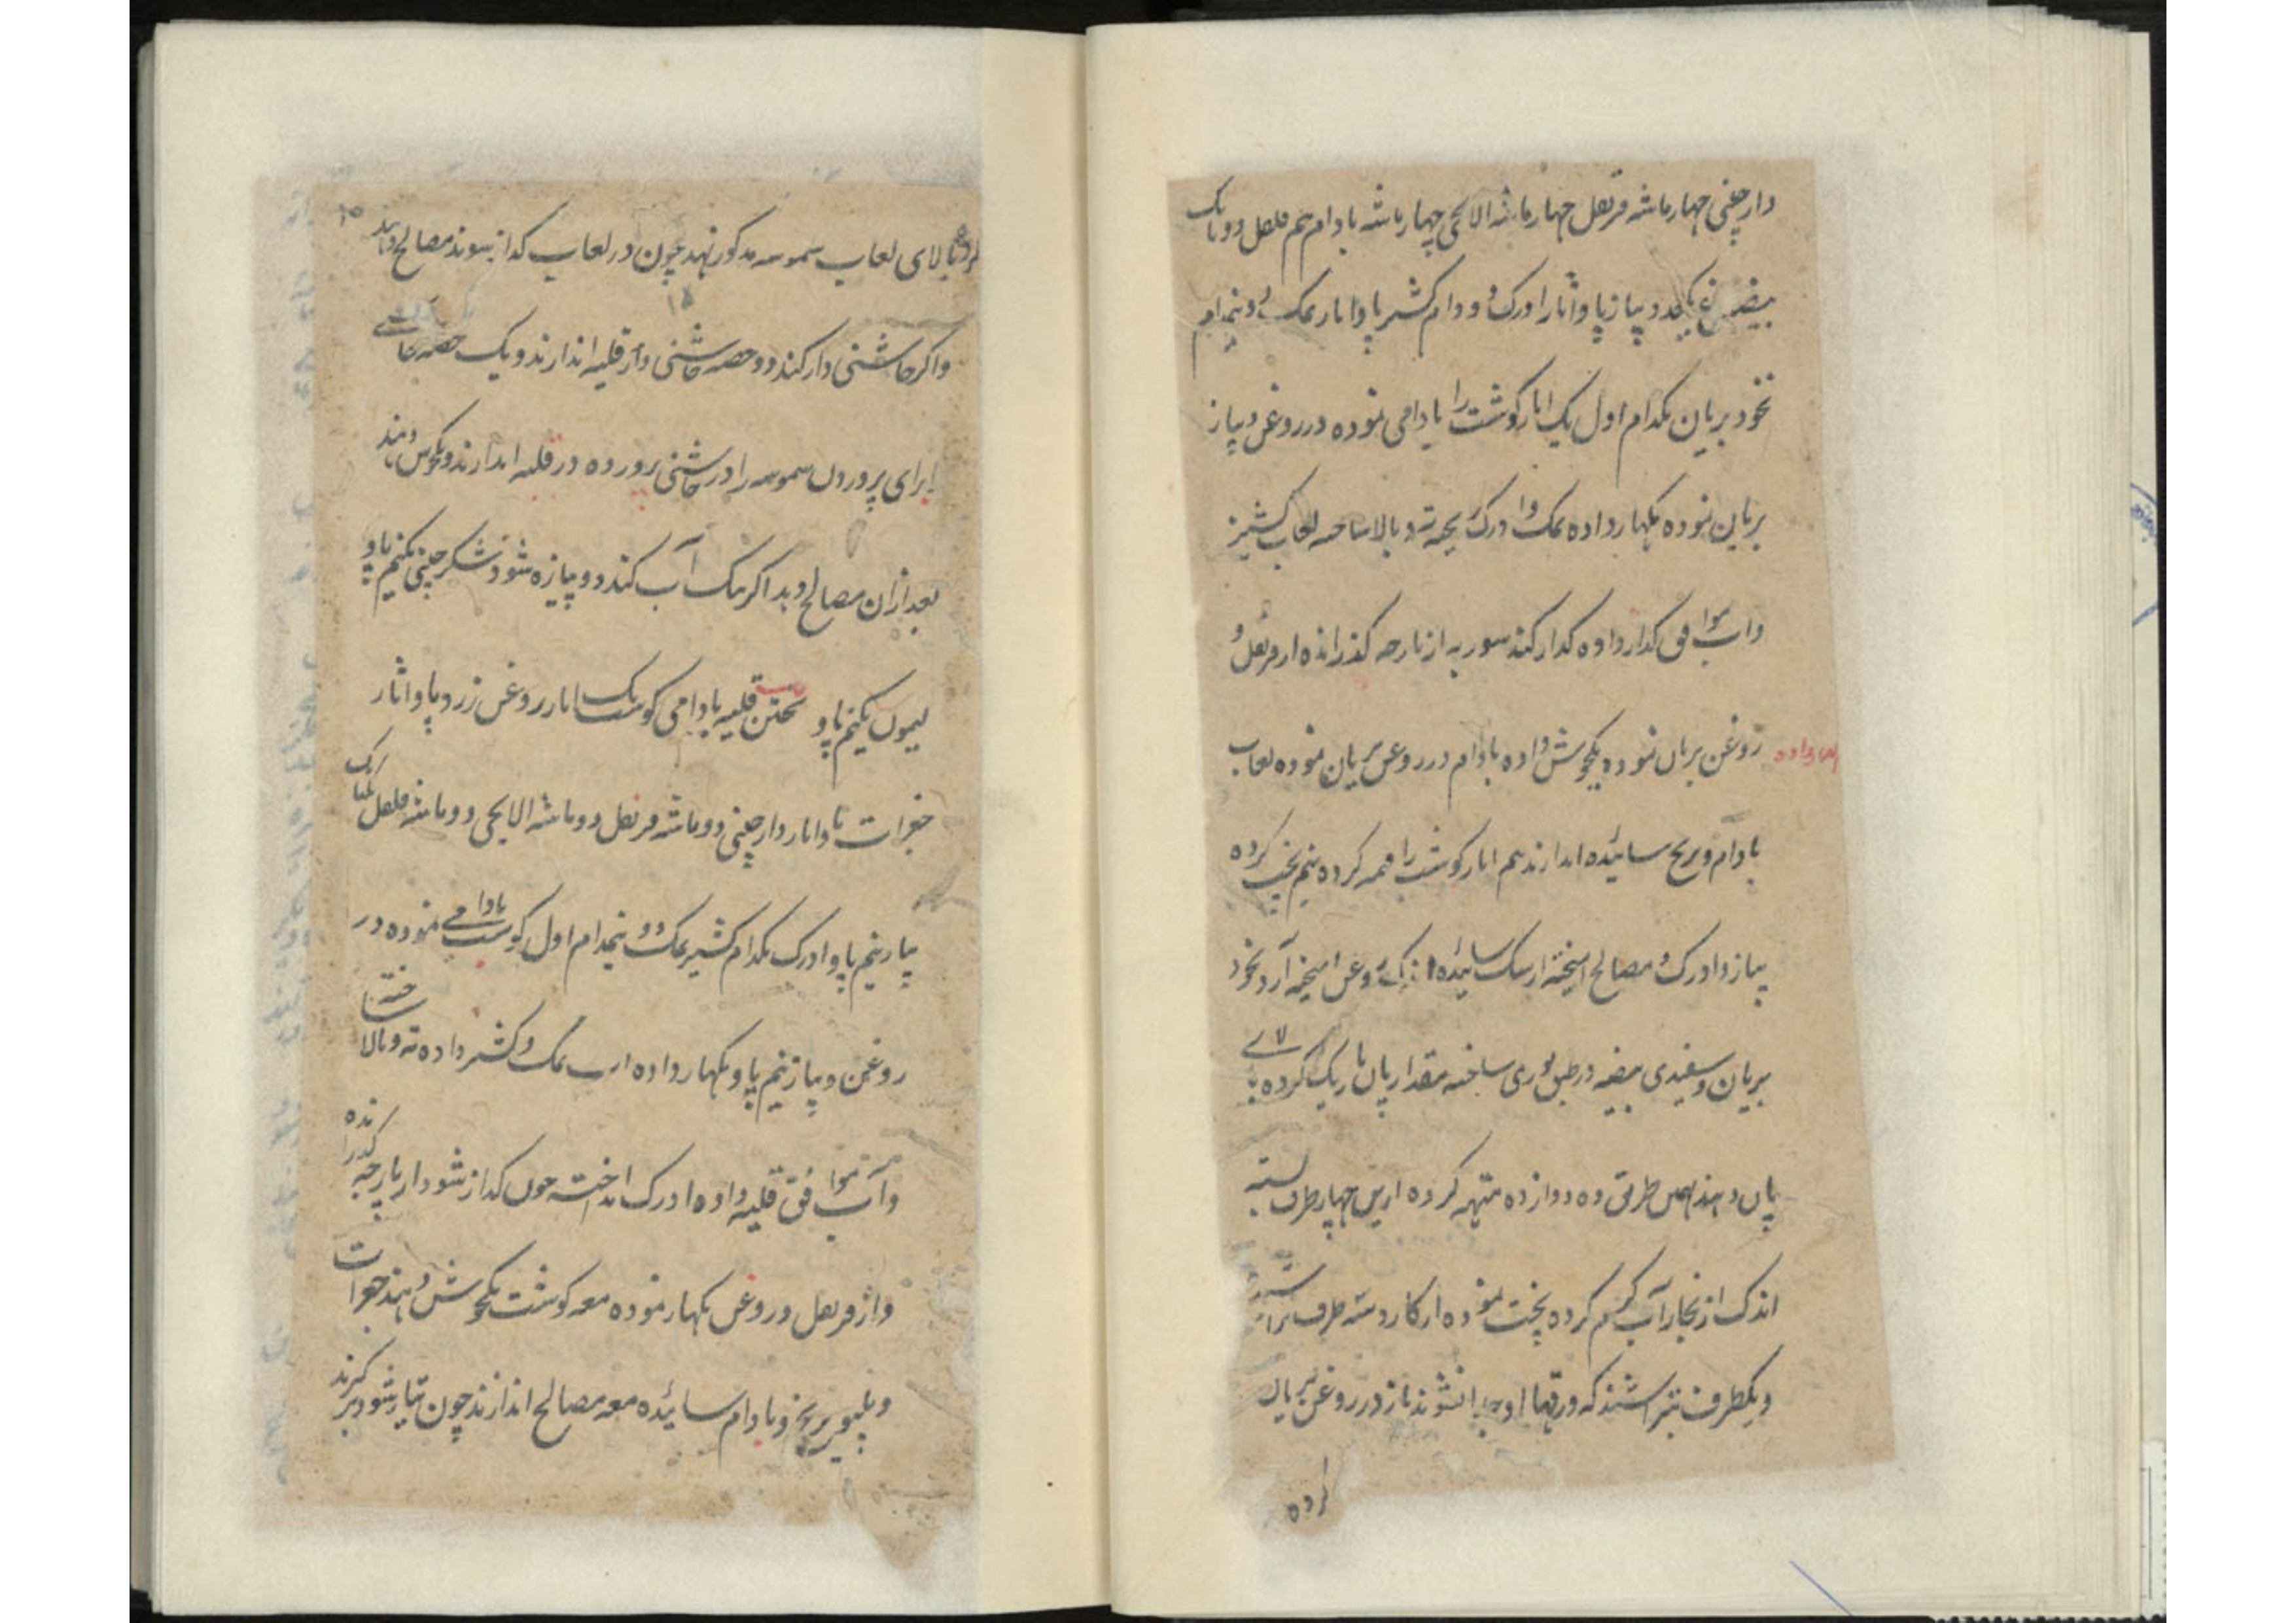 دارچینی چهار ماشه قرنفل چهار ماشه الایچی چهار ماشه بادام نیم فلفل دو دانک
بیضه مرغ یکعدد پیاز پاو اثار ادرک دو دام کشنیز پاو اثار نمک دو نیمدام
نخود بریان یکدام اول یک اثار کوشت را یادامی نموده در روغن و پیاز
بریان نموده بکهار داده نمک و ادرک ته و بالا ساخته لعاب کشنیز
و آب موافق کداز داده کداز کند شوربه از پارچه کذرانده از قرنفل و
روغن بریان نموده یکجوش داده بادام در روغن بریان نموده لعاب
داده
بادام و برنج سائیده اندازند نیم اثار کوشت را قیمه کرده نیم پخت کرده
پیاز و ادرک و مصالح امیخته از سنک سائیده روغن امیخته آرد نخود
بریان و سفیدی بیضه در طبق پوری ساخته مقدار پان باریک کرده بالای
پان دهند بهمین طریق ده دوازده تهه کرده از پس چهار طرف بسته
اندک از بخار آب کرم کرده پخت نموده از کارد سه طرف تراشند
و یکطرف نتراشند که ورقها جدا نشوند باز در روغن بریان
کرده
کرده بالای لعاب سموسه مذکور نهد چون در لعاب کداز شوند مصالح دهند
۱۵
و اکر چاشنی دار کند دو حصه چاشنی در قلیه اندازند و یک حصه چاشنی
برای پروردن سموسه را در چاشنی پرورده در قلیه اندازند و یکجوش دهند
بعد ازان مصالح دهد اکر یک آب کند دو پیازه شود شکر چینی یکنیم پاو
لیمون یکنیم پاو پختن قلیه بادامی کوشت یک اثار روغن زرد پاو اثار
جغرات پاو اثار دارچینی دو ماشه قرنفل دو ماشه الایچی دو ماشه فلفل
پیاز نیم پاو ادرک یکدام کشنیز نمک دو نیمدام اول کوشت یادامی نموده در
روغن و پیاز نیم پاو بکهار داده نمک و کشنیز داده ته و بالا ساخته
و آب موافق قلیه داده ادرک انداخته چون کداز شود از پارچه کذرانده
و از قرنفل و روغن بکهار نموده معه کوشت یکجوش دهند جغرات
و برنج و بادام سائیده معه مصالح اندازند چون تیار شود بر کیرند